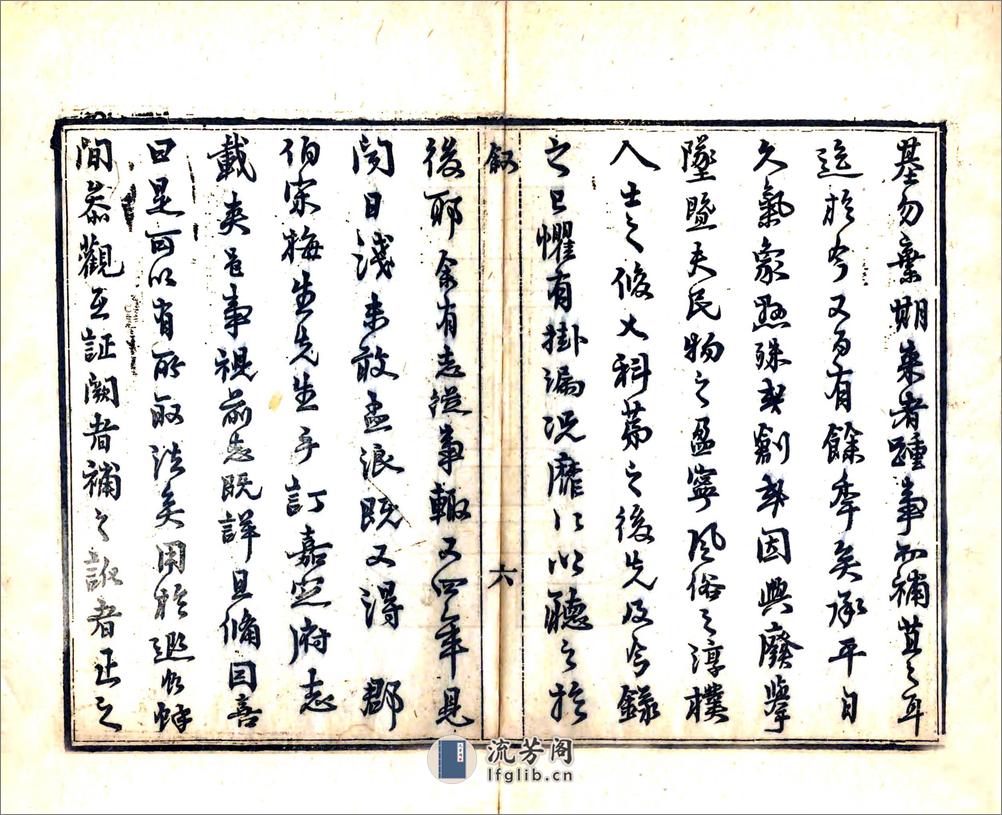 基勿棄期来者踵事而補葺之耳
迄於今又百有餘季矣承平日
久氣象懸殊其創其因興廢舉
墜暨夫民物之盈寧風俗之淳樸
人士之俊乂科第之後先及今錄
之且懼有掛漏況靡所以聽之於
敘
六
後耶余有志從事輒又四年見
聞日淺未敢孟浪既又得 郡
伯宋梅生先生手訂嘉定府志
載夾邑事視前志既詳且備因喜
曰是可以有所取法矣用於退食
間叅觀互証闕者補之訛者正之
流芳阁
lfglib.cn